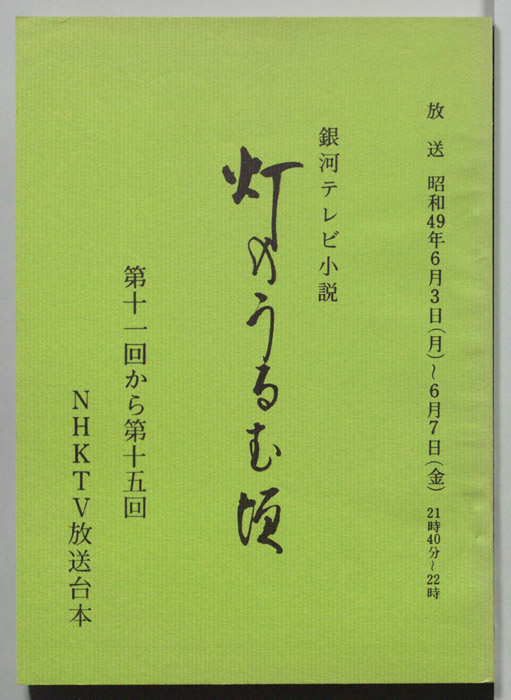 放送 昭和49年6月3日(月)~6月7日(金) 21時40分~22時
銀河テレビ小説
灯のうるむ頃
第十一回から第十五回
NHKTV放送台本